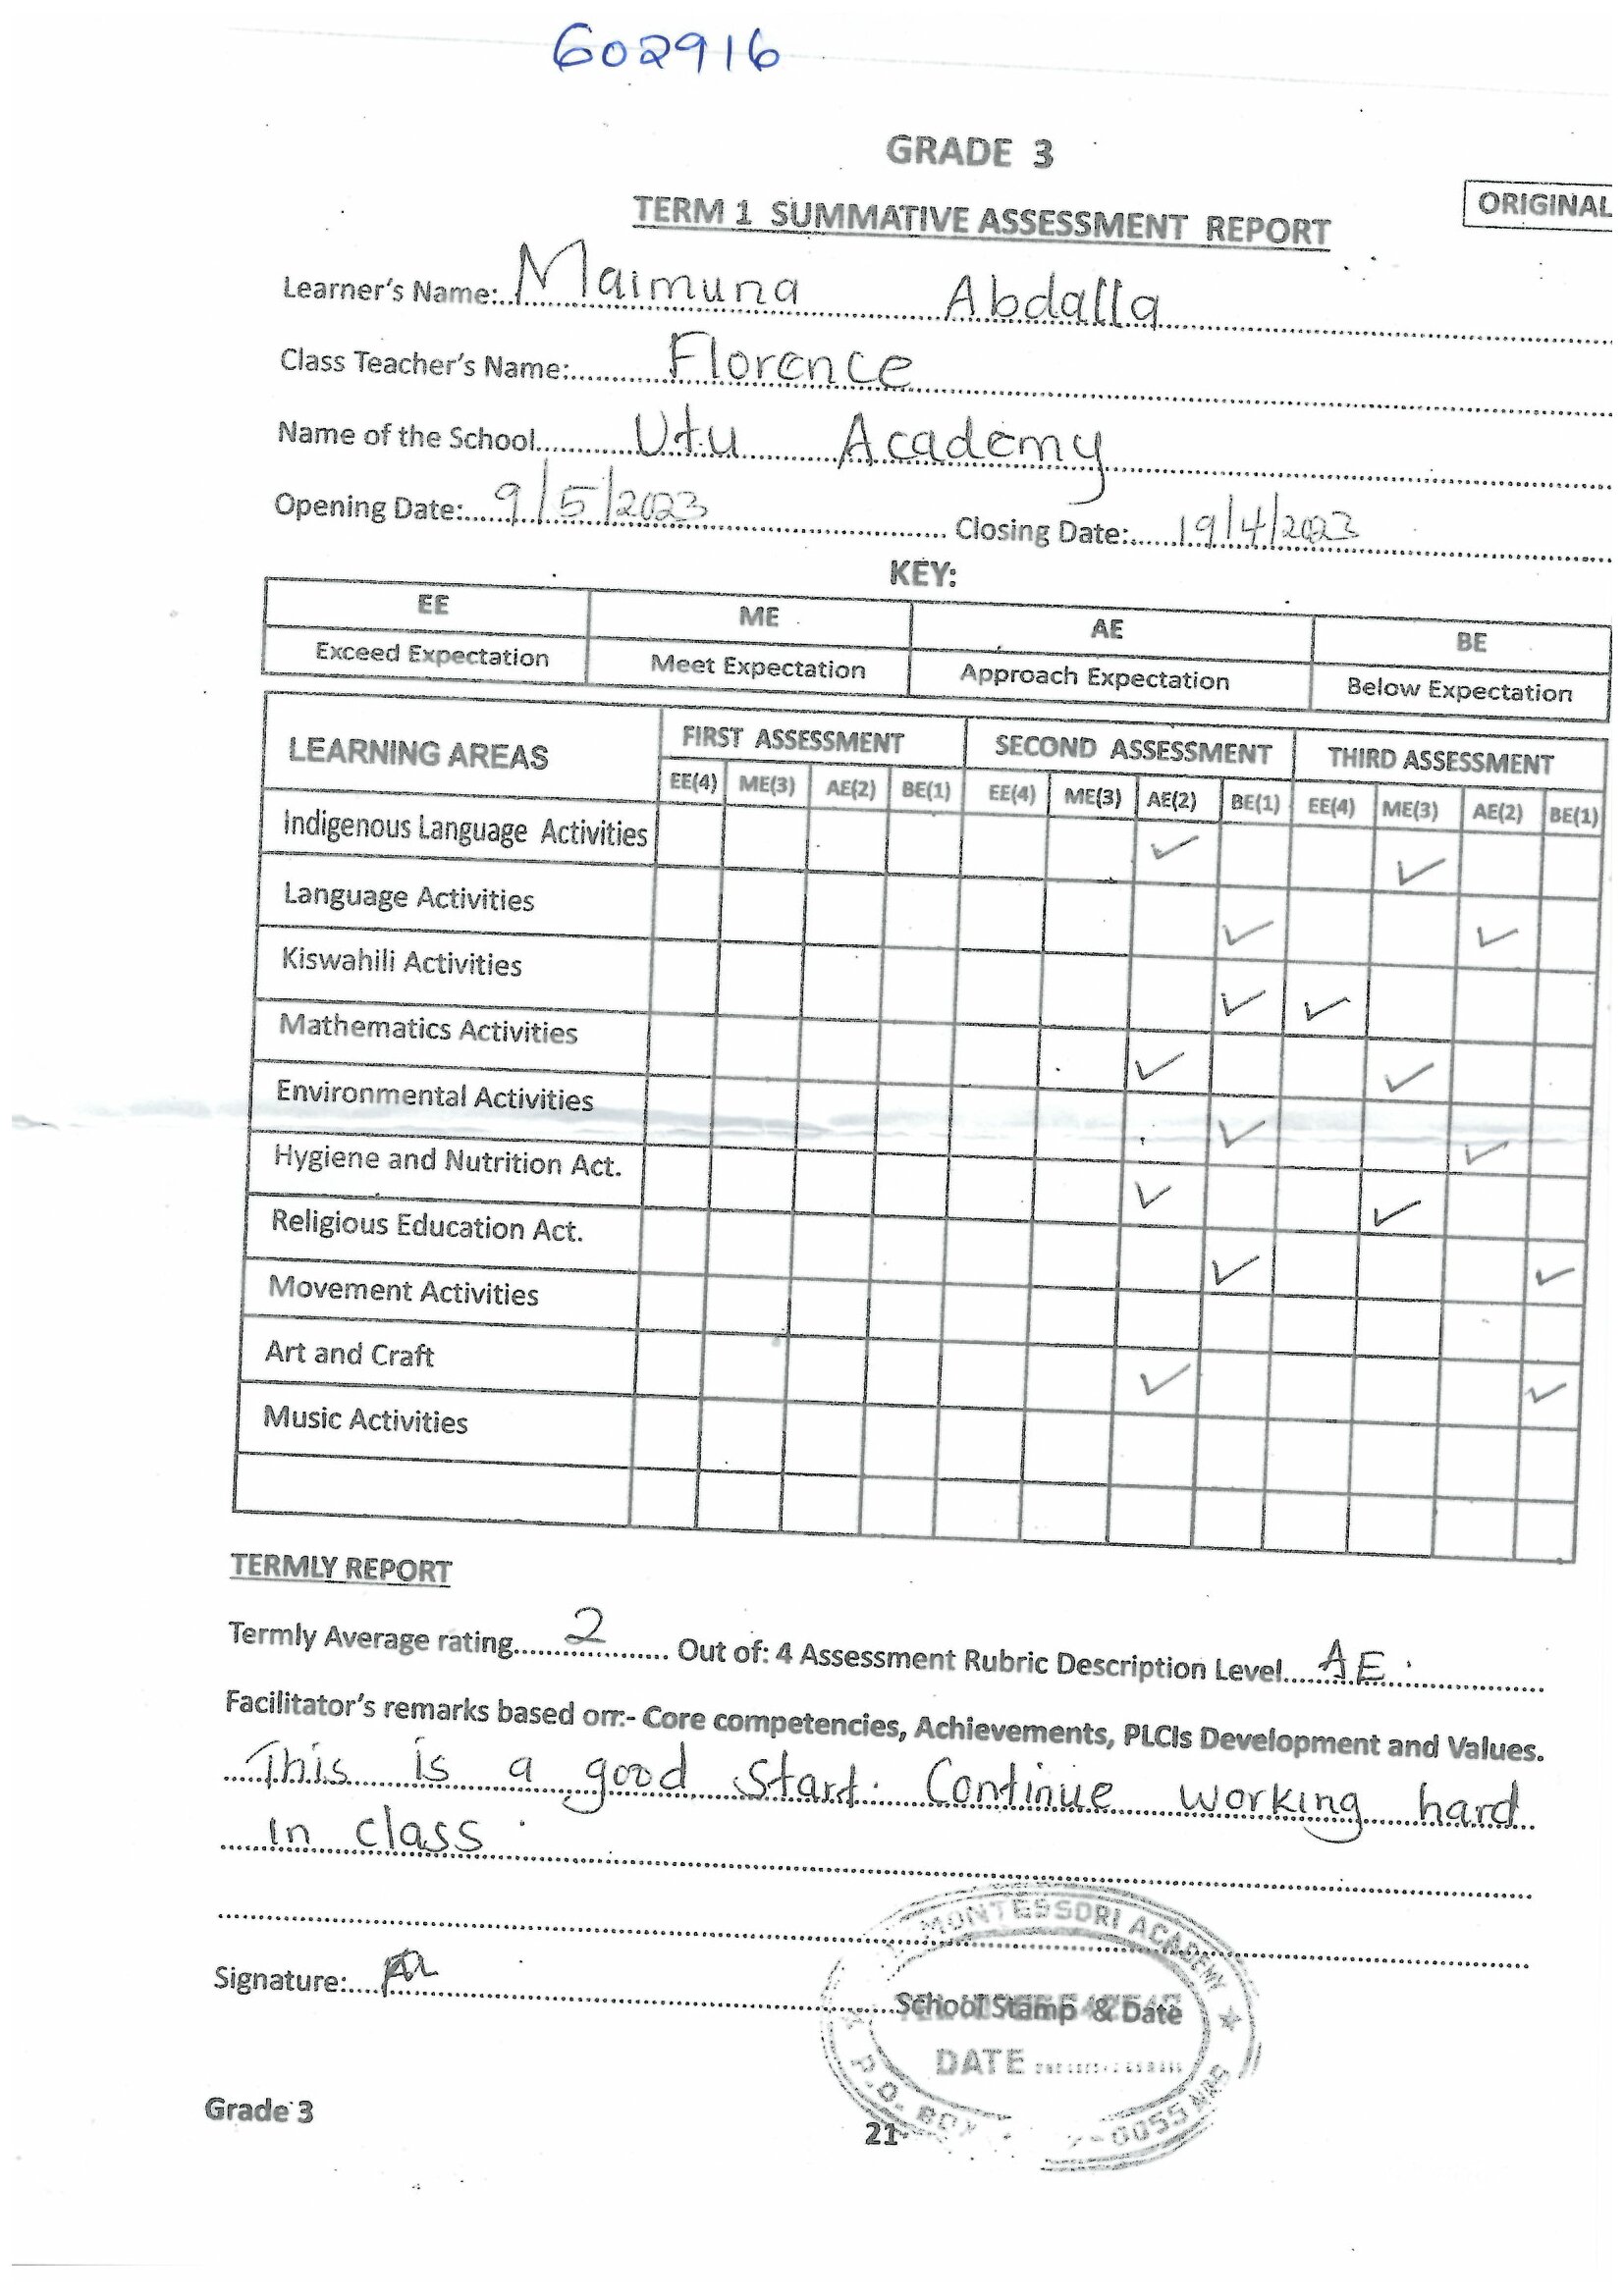 602916
GRADE 3
ORIGINAL
TERM 1 SUMMATIVE ASSESSMENT REPORT
Learner's Name: Maimuna Abdalla
Class Teacher's Name: Florence
Name of the School Utu Academy
Opening Date: 9/5/2023 Closing Date: 19/4/2023
KEY:
EE ME AE BE
Exceed Expectation Meet Expectation Approach Expectation Below Expectation
LEARNING AREAS FIRST ASSESSMENT SECOND ASSESSMENT THIRD ASSESSMENT
EE(4) ME(3) AE(2) BE(1) EE(4) ME(3) AE(2) BE(1) EE(4) ME(3) AE(2) BE(1)
Indigenous Language Activities ✓ ✓
Language Activities ✓ ✓
Kiswahili Activities ✓ ✓
Mathematics Activities ✓ ✓
Environmental Activities ✓ ✓
Hygiene and Nutrition Act. ✓ ✓
Religious Education Act. ✓ ✓
Movement Activities
Art and Craft ✓ ✓
Music Activities
TERMLY REPORT
Termly Average rating 2 Out of: 4 Assessment Rubric Description Level AE
Facilitator's remarks based on:- Core competencies, Achievements, PLCIs Development and Values.
This is a good start. Continue working hard
in class
MONTESSORI ACADEMY
Signature:
School Stamp & Date
DATE
P.O. BOX
Grade 3
21